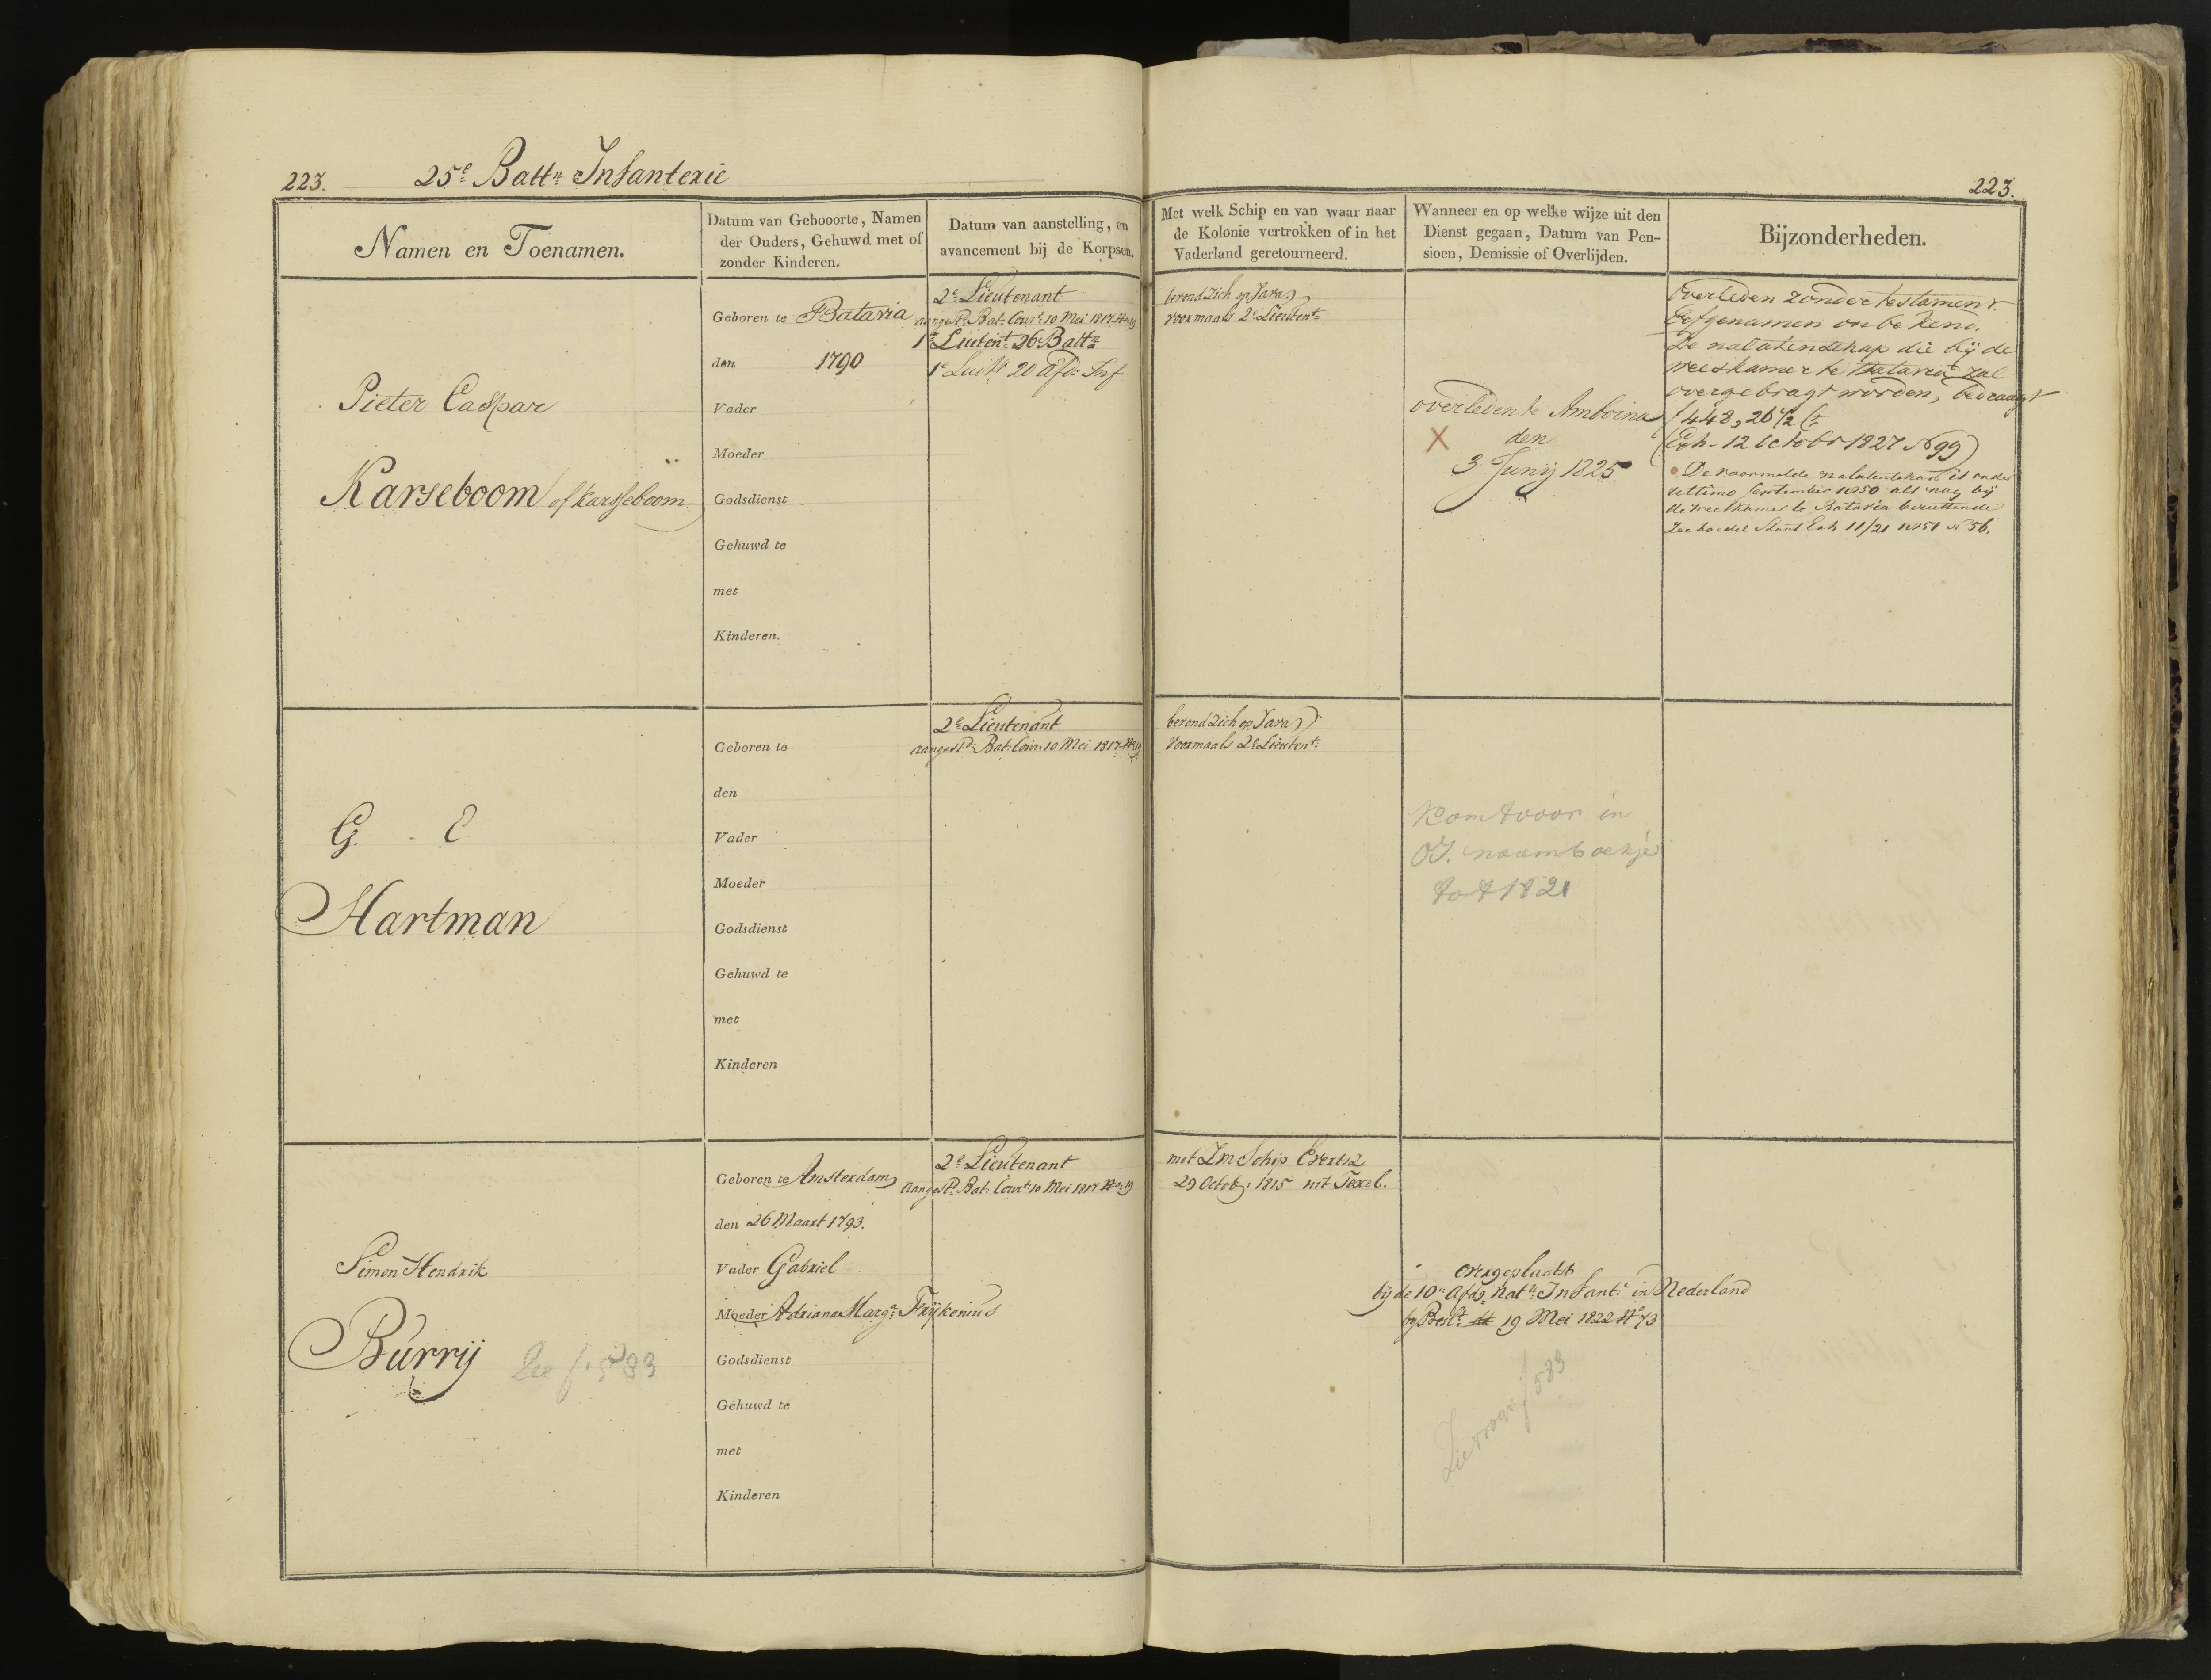 223.
25e Battn Infanterie
223.
Namen en Toenamen.
Datum van Gebooorte, Namen
der Ouders, Gehuwd met of
zonder Kinderen.
Datum van aanstelling, en
avancement bij de Korpsen.
Met welk Schip en van waar naar
de Kolonie vertrokken of in het
Vaderland geretourneerd.
Wanneer en op welke wijze uit den
Dienst gegaan, Datum van Pen-
sioen, Demissie of Overlijden.
Bijzonderheden.
Pieter Caspar
Karseboom of Karsseboom
Geboren te Batavia
den 1790
Vader
Moeder
Godsdienst
Gehuwd te
met
Kinderen.
2e Lieutenant
aangest. Bat. Cour. 10 Mei 1817 No 19
1e Luitent 26 Battn
1e Luitt 20 Afde Inf
bevond zich op Java
voormaals 2e Lieutent
overleden te Amboina
X den
3 Junij 1825
Overleden zonder testament
Erfgenamen onbekend.
De nalatenschap die bij de
weeskamer te Batavia zal
overgebragt worden, bedraagt
f 448,26 1/2
(Exh. 12 Octobr 1827 No 99)
De voormelde nalatenschap is onder
ultimo September 1850 als nog bij
de weeskamer te Batavia berustende
Zie boedel Staat Exh 11/21 1851 No 56.
G. E
Hartman
Geboren te
den
Vader
Moeder
Godsdienst
Gehuwd te
met
Kinderen
2e Lieutenant
aangestd Bat. Cour. 10 Mei 1817 No 19
bevond zich op Java
voormaals 2e Lieutent
Komt voor in
O.I. naamboekje
tot 1821
Simon Hendrik
Burrij Zie f. 583
Geboren te Amsterdam
den 26 Maart 1793.
Vader Gabriel
Moeder Adriana Marga Frijkenius
Godsdienst
Gehuwd te
met
Kinderen
2e Lieutenant
aangestd Bat. Cour. 10 Mei 1817 No 19
met Zm Schip Evertsz
29 Octobr 1815 uit Texel.
overgeplaatst
bij de 10e Afdg Natle Infante in Nederland
by Beslt 19 Mei 1822 No 73
Zie voorts f 583